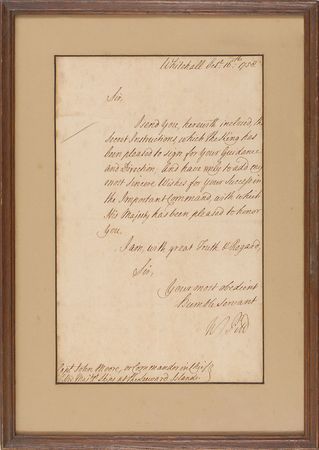 Whitehall Octr. 16th. 1758
Sir,
I send You, herewith inclosed, the
Secret Instructions, which the King has
been pleased to sign for Your Guidance
and Direction; And have only to add my
most sincere Wishes for Your Success in
the Important Command, with which
His Majesty has been pleased to honor
You.
I am, with great Truth & Regard,
Sir,
Your most obedient
Humble Servant
W Pitt
Capt. John Moore, or Commander in Chief
of His Majts. Ships at the Leeward Islands.